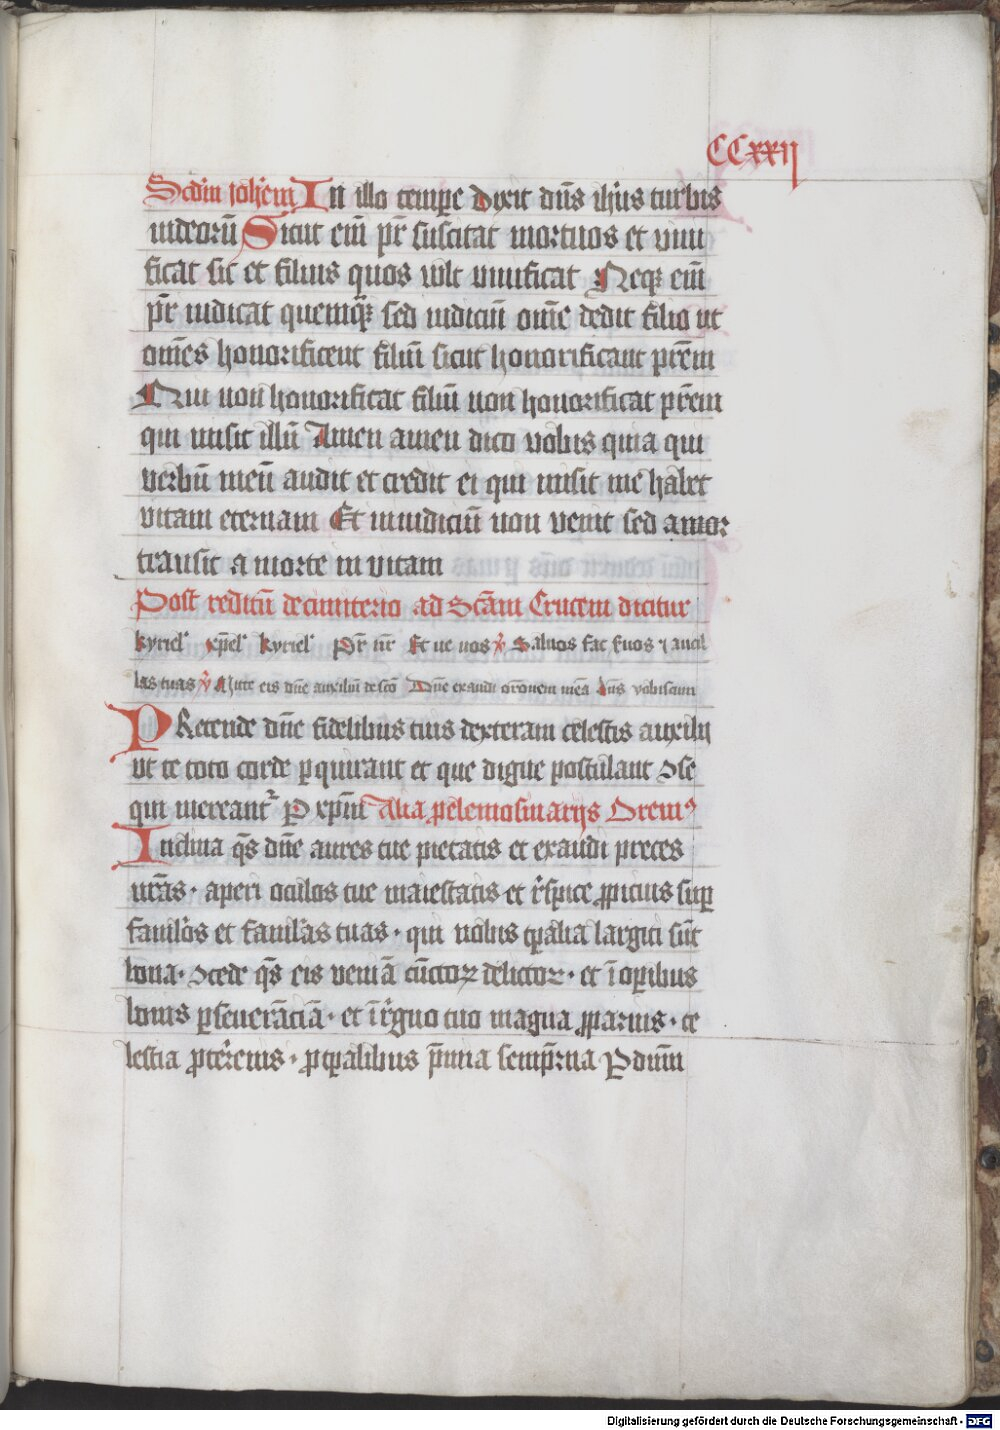 CCxxij
Scdm iohem In illo tempe dixit dns ihus turbis
iudeoru Sicut eni pr suscitat mortuos et viui
ficat sic et filius quos vult viuificat Neqz eni
pr iudicat quemqz sed iudiciu ome dedit filio vt
omes honorificent filiu sicut honorificant prem
Qui non honorificat filiu non honorificat prem
qui misit illu Amen amen dico vobis quia qui
verbu meu audit et credit ei qui misit me habet
vitam eternam Et iniudiciu non venit sed amor
transit a morte in vitam
Post reditu de cimiterio ad Scam Crucem dicitur
kyriel xpel kyriel Pr nr Et ne nos ℣ Saluos fac suos et ancil
las tuas ℣ Mitte eis dne auxiliu de sco Dne exaudi oronem mea dns vobiscum
PRetende dne fidelibus tuis dexteram celestis auxilij
vt te toto corde pquirant et que digne postulant ɔse
qui mereant P xpm Alia pelemosinarijs Oremꝰ
Inclina qs dne aures tue pietatis et exaudi preces
nras · aperi oculos tue maiestatis et rspice ppicius sup
famlos et famlas tuas · qui nobis tpalia largiti sut
bona · ɔcede qs eis venia cuctoꝝ delictoꝝ · et i opibus
bonis pseueracia · et i rgno tuo magna pparius · ce
lestia pteremis · ptpalibus pmia sempna P dnm
Digitalisierung gefördert durch die Deutsche Forschungsgemeinschaft - DFG